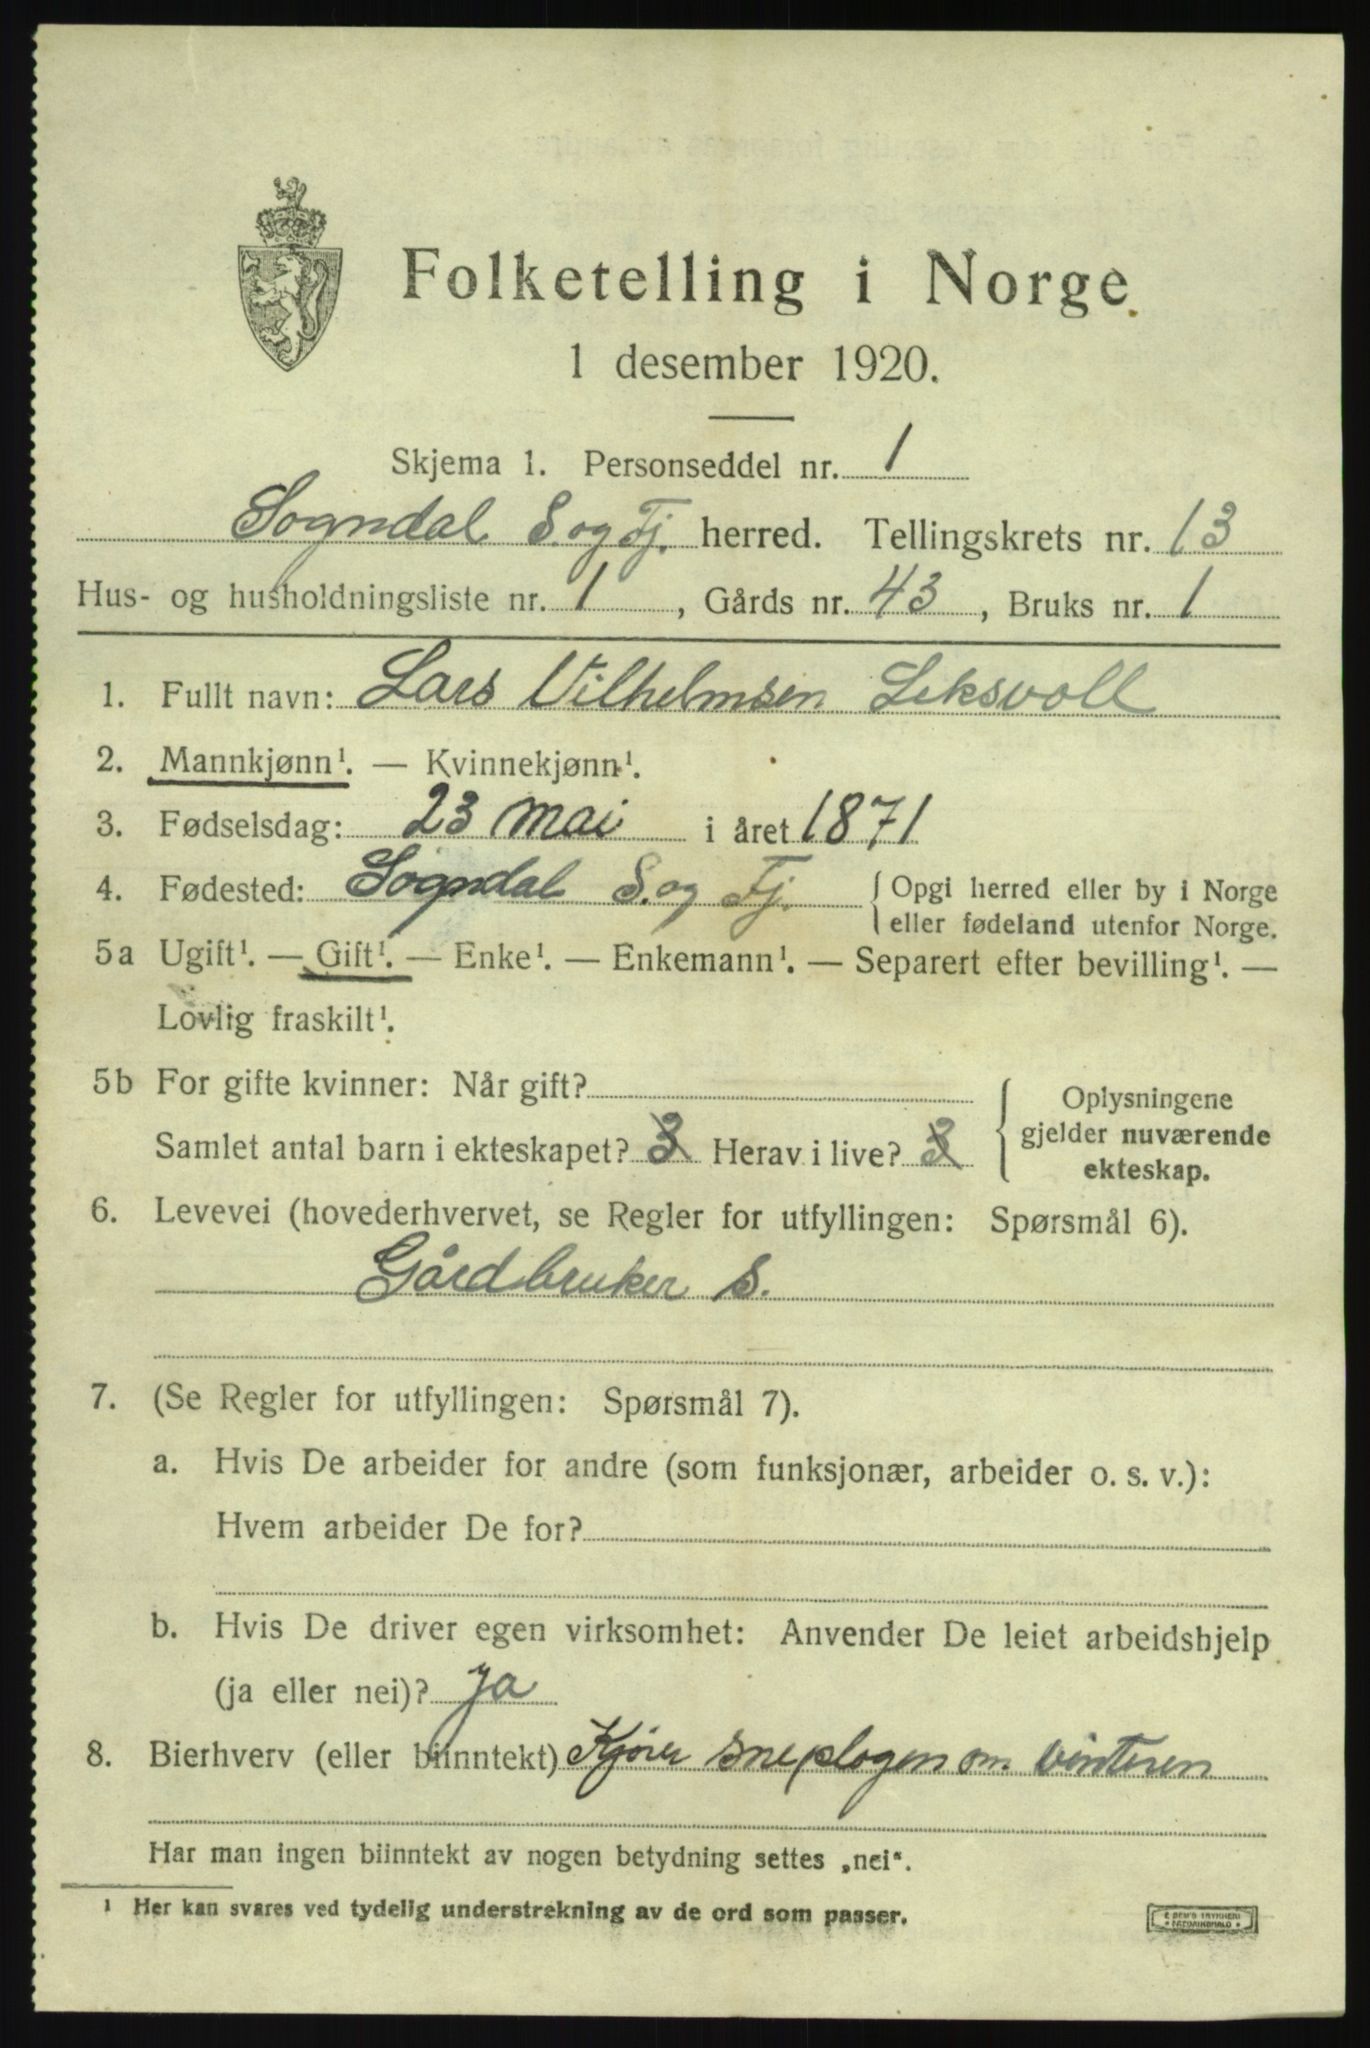 Folketelling i Norge
1 desember 1920.
Skjema 1. Personseddel nr. 1
Sogndal S. og Fj. herred. Tellingskrets nr. 13
Hus- og husholdningsliste nr. 1, Gårds nr. 43, Bruks nr. 1
1. Fullt navn: Lars Vilhelmsen Leksvoll
2. Mannkjønn¹. — Kvinnekjønn¹.
3. Fødselsdag: 23 mai i året 1871
4. Fødested: Sogndal S. og Fj. { Opgi herred eller by i Norge
eller fødeland utenfor Norge.
5a Ugift¹. — Gift¹. — Enke¹. — Enkemann¹. — Separert efter bevilling¹. —
Lovlig fraskilt¹.
5b For gifte kvinner: Når gift?
Samlet antal barn i ekteskapet? 3 Herav i live? 3
{ Oplysningene
gjelder nuværende
ekteskap.
6. Levevei (hovederhvervet, se Regler for utfyllingen: Spørsmål 6).
Gårdbruker S.
7. (Se Regler for utfyllingen: Spørsmål 7).
a. Hvis De arbeider for andre (som funksjonær, arbeider o. s. v.):
Hvem arbeider De for?
b. Hvis De driver egen virksomhet: Anvender De leiet arbeidshjelp
(ja eller nei)? ja
8. Bierhverv (eller biinntekt) Kjører sneplogen om vinteren
Har man ingen biinntekt av nogen betydning settes „nei“.
¹ Her kan svares ved tydelig understrekning av de ord som passer.